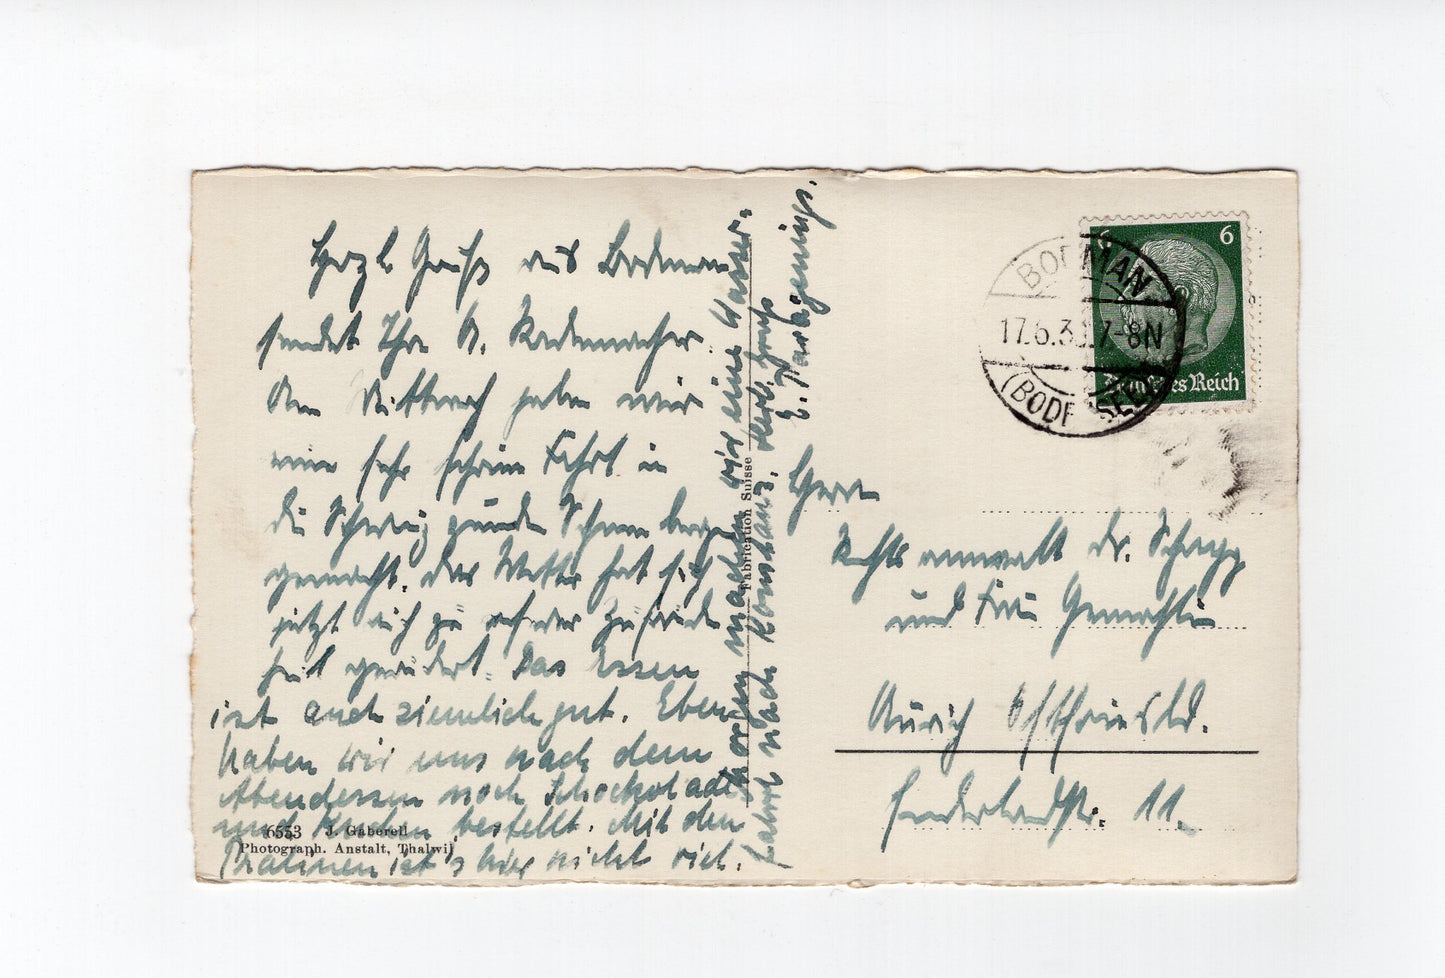 Herzl. Gruß aus Bodman
sendet Ihre A. Rademacher.
Am Mittwoch haben wir
eine sehr schöne Fahrt in
die Schweiz
gemacht. Das Wetter hat sich
jetzt auch zu unserer Zufrieden
heit geändert. Das Essen
ist auch ziemlich gut. Eben
haben wir uns nach dem
Abendessen noch Schokolade
und Kuchen bestellt. Mit den
Pralinen ist's hier nicht viel.
Morgen machen wir eine Wasser-
fahrt nach Konstanz. Herl. Gruß
E.
6553 J. Gaberell
Photograph. Anstalt, Thalwil
Fabrication Suisse
6 6
Deutsches Reich
BODMAN
17.6.3 7-8N
(BODENSEE)
Herrn
Rechtsanwalt Dr. Schapp
und Frau Gemahlin
Aurich Ostfriesld.
11.